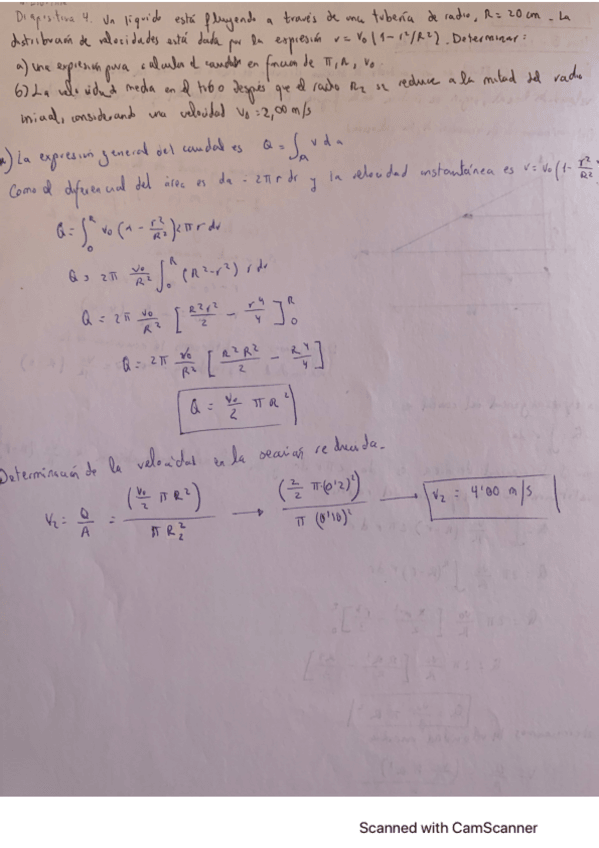 Diapositiva 4. Un líquido está fluyendo a través de una tubería de radio, R = 20 cm. La
distribución de velocidades está dada por la expresión v = v₀ (1 - r²/R²). Determinar:
a) Una expresión para calcular el caudal en función de π, R, v₀
b) La velocidad media en el tubo después que el radio R₂ se reduce a la mitad del radio
inicial, considerando una velocidad V₀ = 2,00 m/s
a) La expresión general del caudal es Q = ∫_A v da
Como el diferencial del área es da = 2πr dr y la velocidad instantánea es v = v₀ (1 - r²/R²
Q = ∫₀^R v₀ (1 - r²/R²) 2π r dr
Q = 2π v₀/R² ∫₀^R (R² - r²) r dr
Q = 2π v₀/R² [R²r²/2 - r⁴/4]₀^R
Q = 2π v₀/R² [R²R²/2 - R⁴/4]
Q = v₀/2 π R²
Determinación de la velocidad en la sección reducida.
V₂ = Q/A = (v₀/2 π R²)/(π R₂²) → (2/2 π (0'2)²)/(π (0'10)²) → V₂ = 4'00 m/s
Scanned with CamScanner